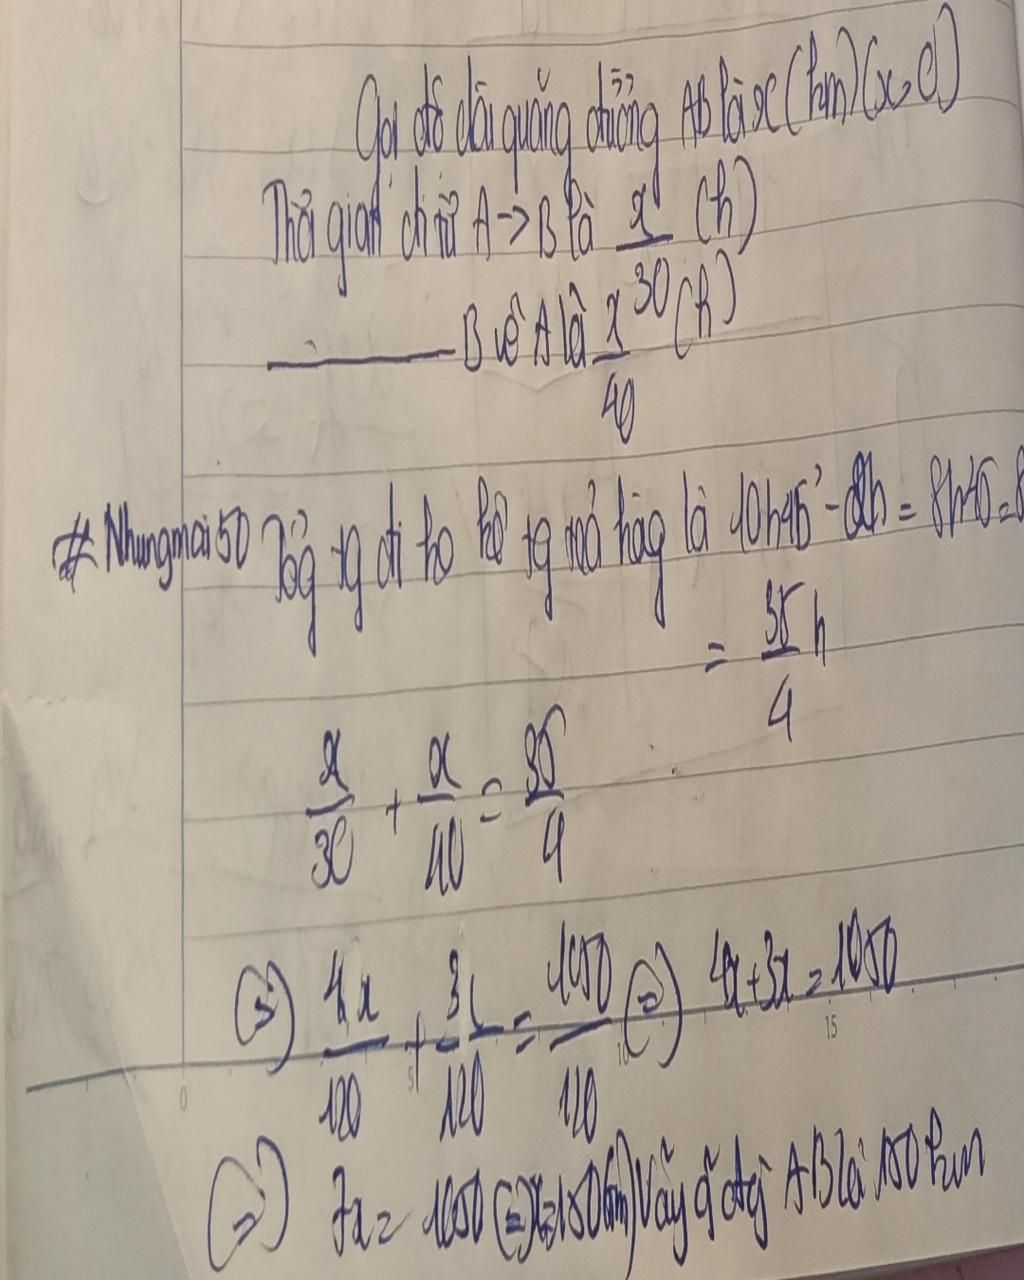 Gọi độ dài quãng đường AB là x (km) (x>0)
Thời gian đi từ A -> B là x/30 (h)
B về A là x/40 (h)
# Nhungmai50 Tổg tg đi ko kể tg trả hàg là 10h45' - 2h = 8h45 = 8
= 35/4 h
x/30 + x/40 = 35/4
(=) 4x/120 + 3x/120 = 1050/120 (=) 4x+3x = 1050
0 5 10 15
(=) 7x = 1050 (=) x=150(km) Vậy q đg AB là 150 km